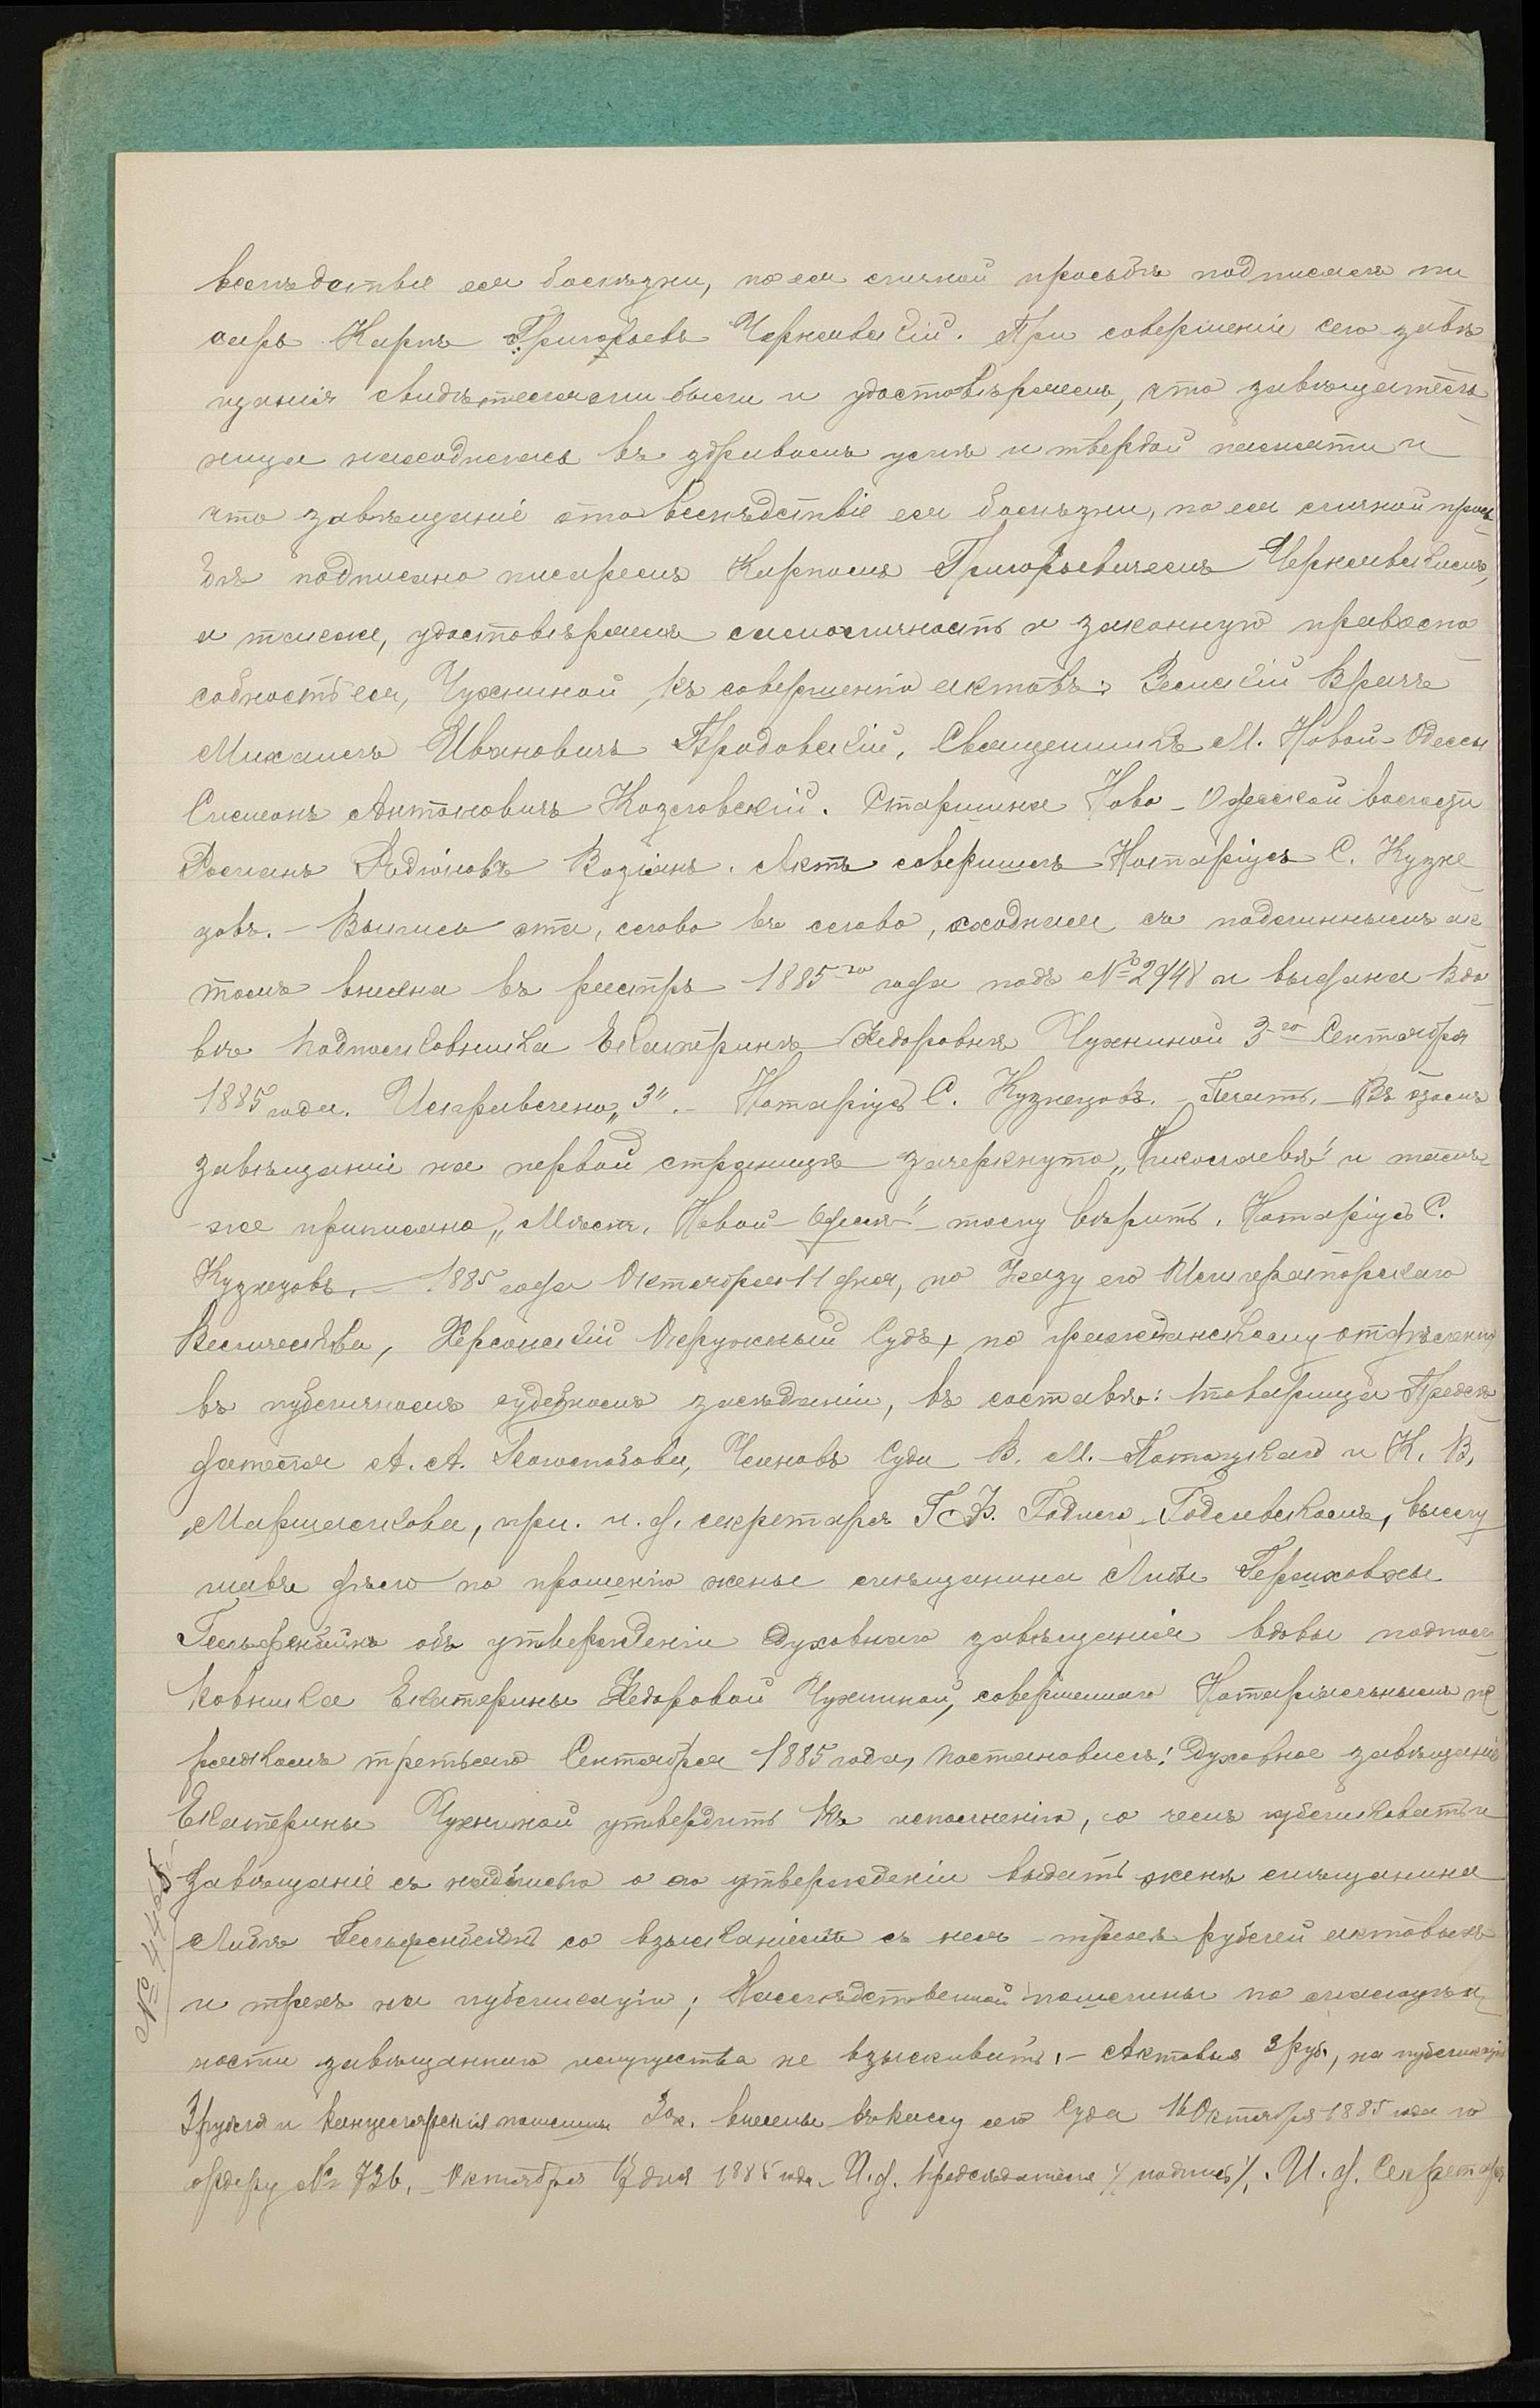 вслѣдствіе ея болѣзни, по ея личной просьбѣ подписался пи
сарь Карпъ Григорьевъ Чернявскій. При совершеніи сего завѣ
щанія свидѣтелями были и удостовѣряемъ, что завѣщатель
ница находилась въ здравомъ умѣ и твердой памяти и
что завѣщаніе это вслѣдствіе ея болѣзни, по ея личной прось
бѣ подписано писаремъ Карпомъ Григорьевичемъ Чернявскимъ,
а также, удостовѣряемъ самоличность и законную правоспо
собность ея, Чухниной, къ совершенію актовъ: Земскій Врачъ
Михаилъ Ивановичъ Бродовскій, Священникъ М. Новой-Одессы
Симеонъ Антоновичъ Козловскій. Старшина Ново-Одесской волости
Романъ Родіоновъ Козіянъ. Актъ совершилъ Нотаріусъ С. Кузне
цовъ. – Выпись эта, слово въ слово, сходная съ подлиннымъ ак
томъ внесена въ реестръ 1885го года подъ № 2948 и выдана Вдо
вѣ Подполковника Екатеринѣ Ѳедоровнѣ Чухниной 3го Сентября
1885 года. Исправлено „3“. – Нотаріусъ С. Кузнецовъ. – Печать. – Въ этомъ
завѣщаніи на первой страницѣ зачеркнуто „Николаевѣ“ и тамъ
же приписано „Мѣст. Новой-Одессѣ“ – тому вѣрить. Нотаріусъ С.
Кузнецовъ. – 1885 года Октября 11 дня, по Указу его Императорскаго
Величества, Херсонскій Окружный Судъ, по гражданскому отдѣленію
въ публичномъ судебномъ засѣданіи, въ составѣ: товарища Предсѣ
дателя А. А. Членовъ Суда В. М. и К. В.
Маршалкова, при и. д. секретаря Г. Ф. Годлевскомъ, выслу
шавъ дѣло по прошенію жены мѣщанина Либы Гершковны
Гельфенбейнъ объ утвержденіи духовнаго завѣщанія вдовы подпол
ковника Екатерины Ѳедоровой Чухниной, совершеннаго Нотаріальнымъ по
рядкомъ третьяго Сентября 1885 года, постановилъ: духовное завѣщаніе
Екатерины Чухниной утвердить къ исполненію, о чемъ публиковать и
завѣщаніе съ надписью о его утвержденіи выдать женѣ мѣщанина
Либѣ Гельфенбейнъ со взысканіемъ съ нея трехъ рублей актовыхъ
и трехъ на публикацію; Наслѣдственной пошлины по малоцѣн
ности завѣщаннаго имущества не взыскивать. – Актовыя 3 руб., на публикацію
3 рубля и канцелярскія пошлины 30 к. внесены въ кассу сего Суда 16 Октября 1885 года по
ордеру № 736. – Октября дня 1885 года. И. д. Предсѣдателя /подпись/. И. д. Секретаря